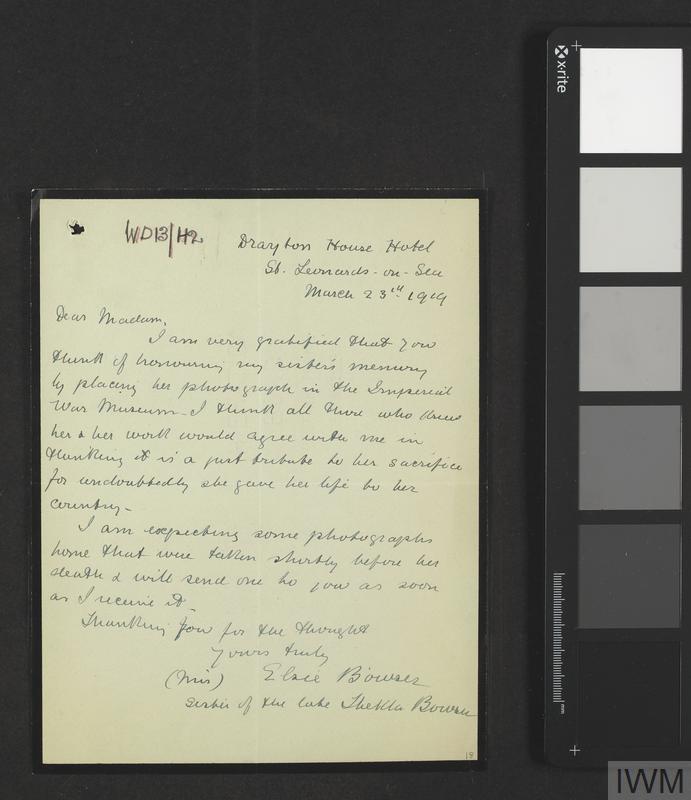 WD13/H2
Drayton House Hotel
St. Leonards-on-Sea
March 23rd 1919
Dear Madam,
I am very gratified that you
think of honouring my sister's memory
by placing her photograph in the Imperial
War Museum - I think all those who knew
her & her work would agree with me in
thinking it is a just tribute to her sacrifice
for undoubtedly she gave her life to her
country -
I am expecting some photographs
home that were taken shortly before her
death & will send one to you as soon
as I receive it -
Thanking you for the thought
Yours truly
(Miss) Elsie Bowser
Sister of the late Thekla Bowser
18
x·rite
mm
IWM